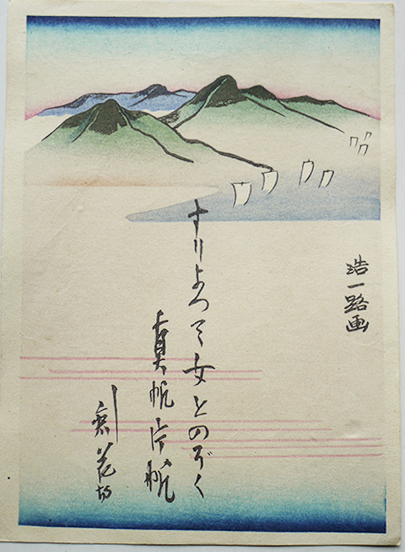 浩一路画
すりよつて女とのぞく
真帆片帆
剣花坊